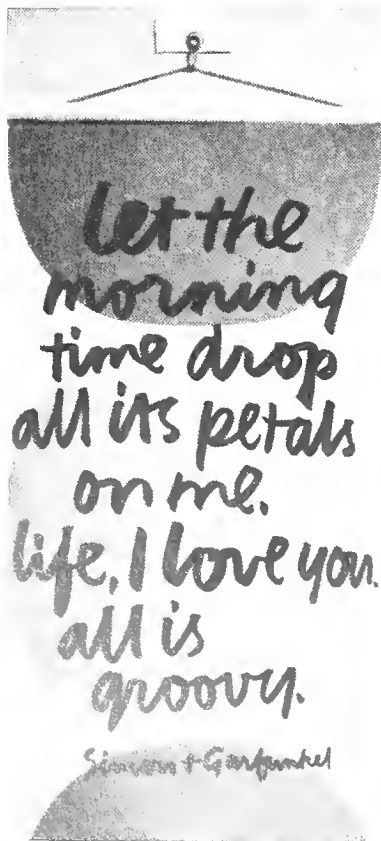 let the
morning
time drop
all its petals
on me.
life, I love you.
all is
groovy.
Simon + Garfunkel